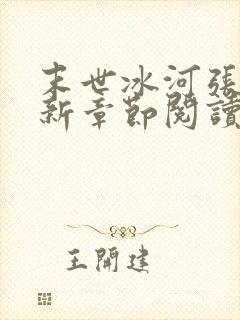 末世冰河張
新章節閱讀
王開建